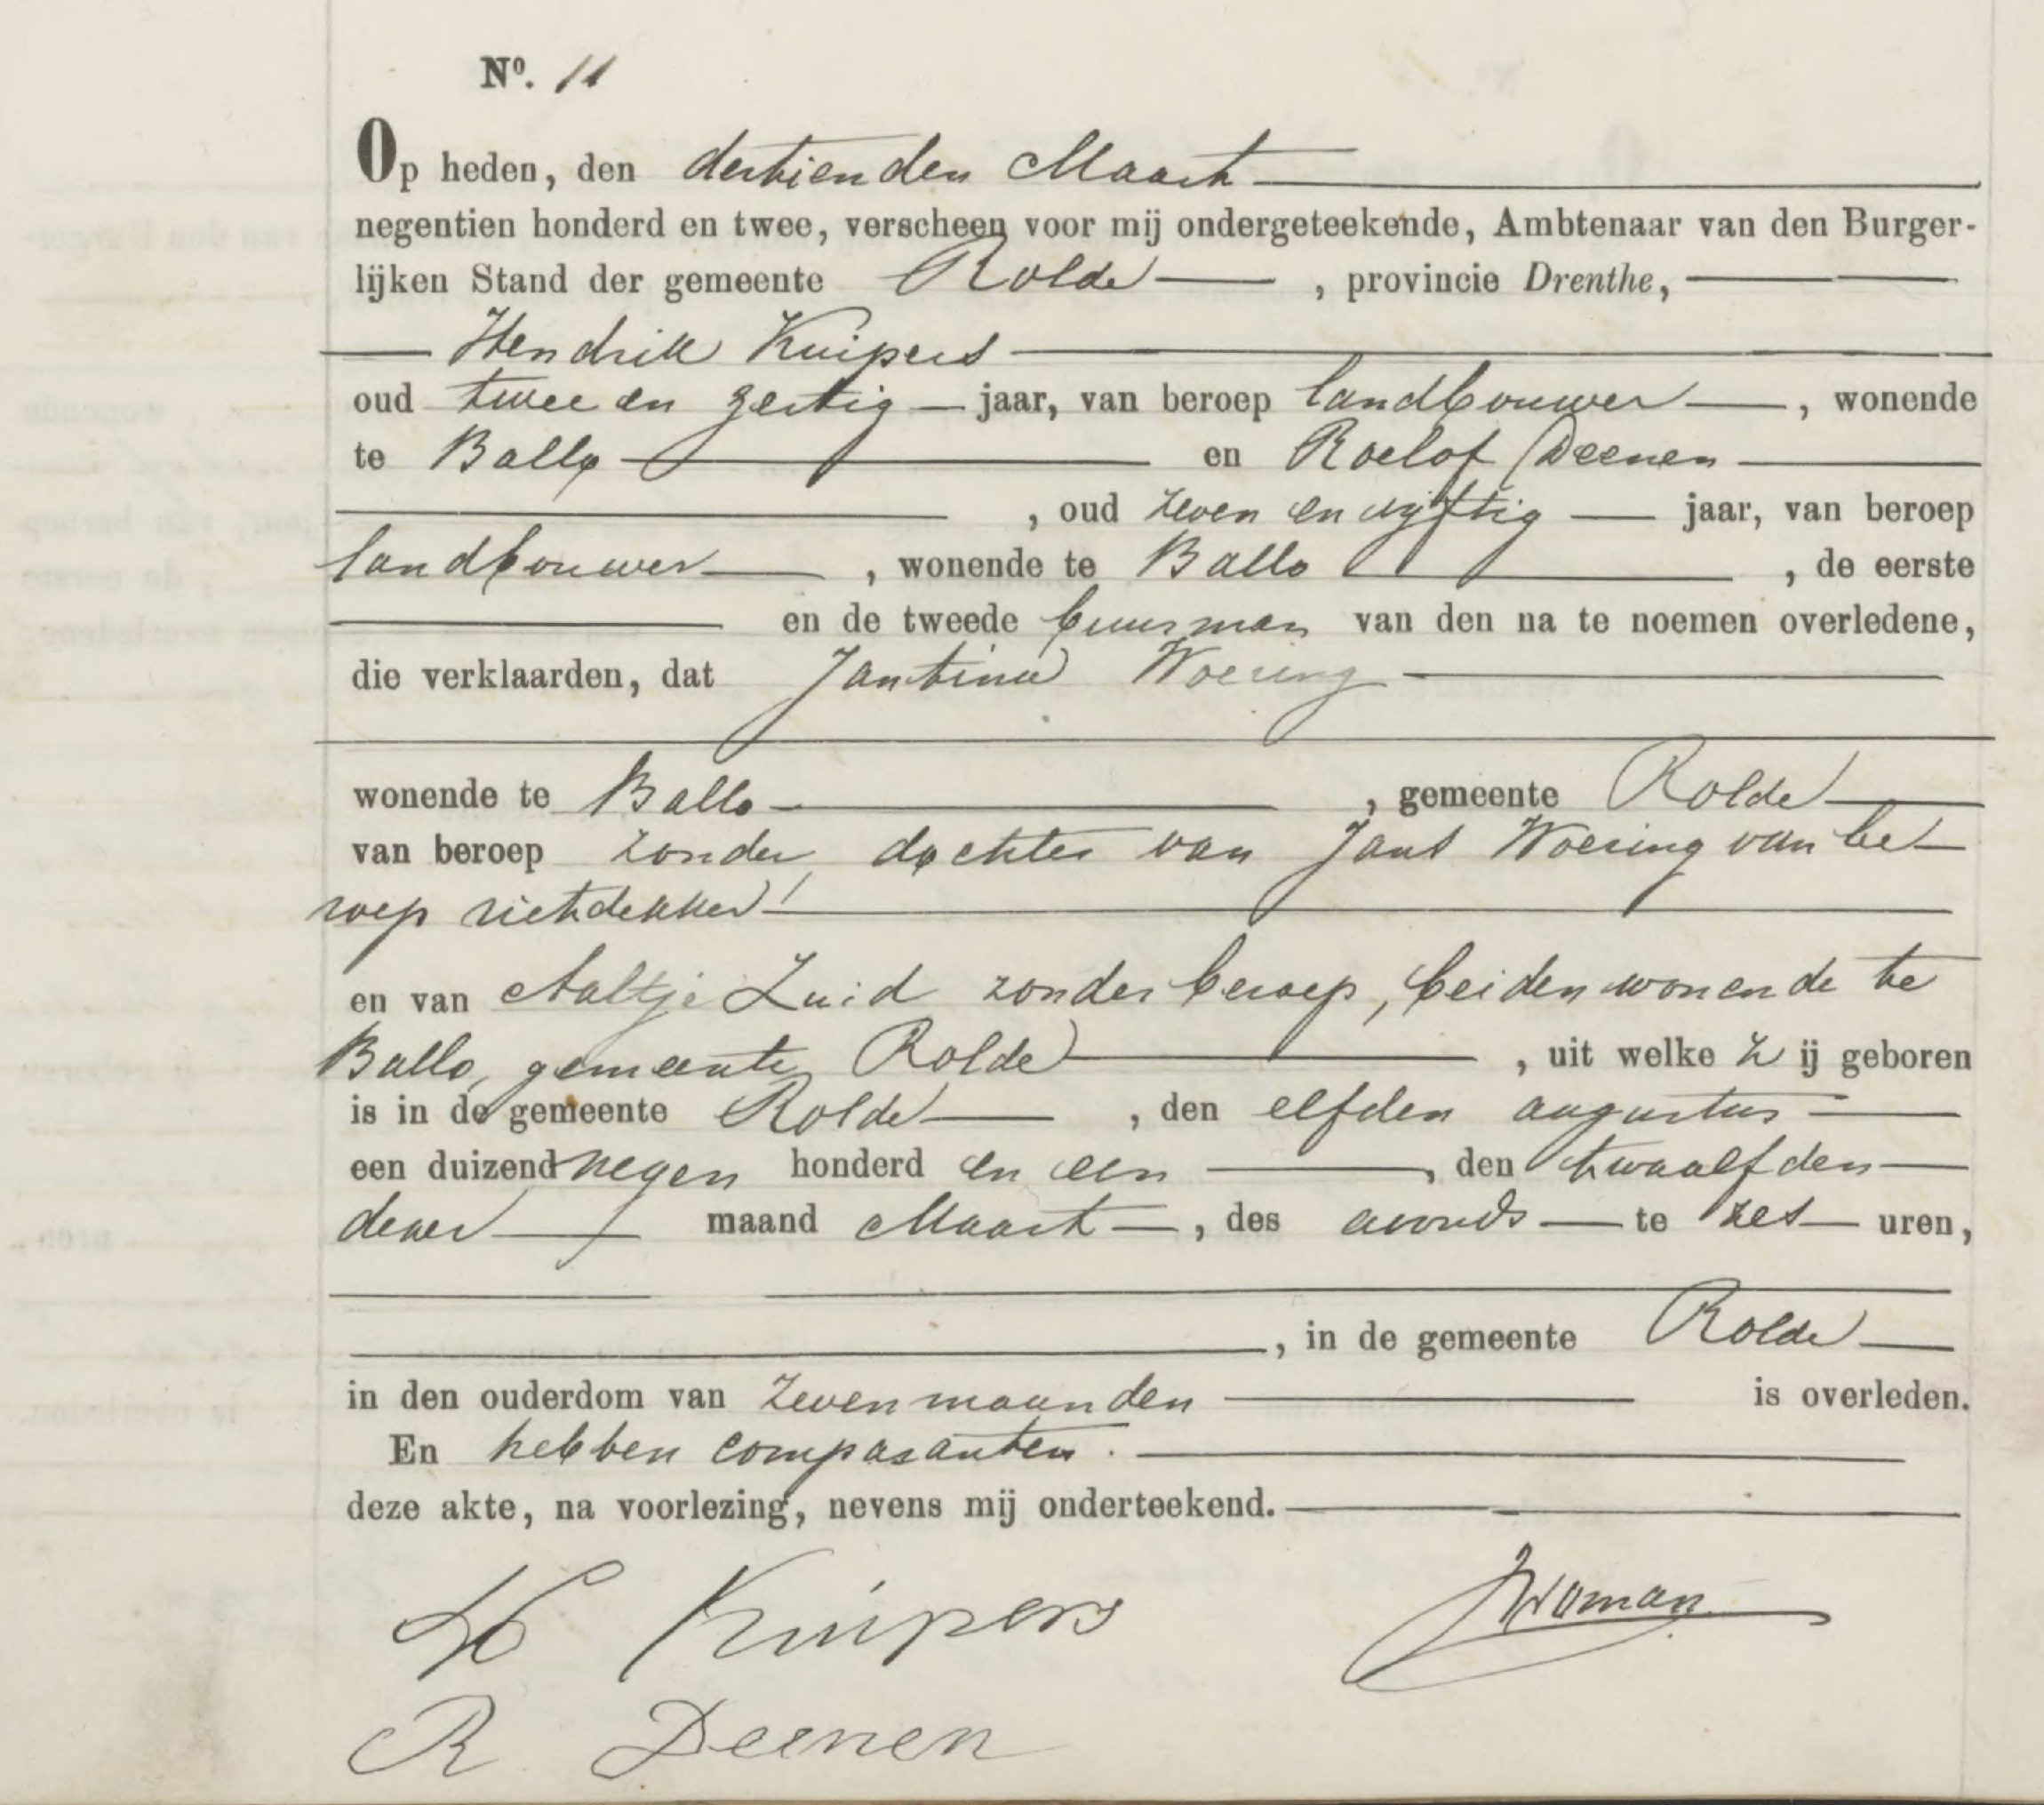 Nº. 11
Op heden, den dertienden Maart
negentien honderd en twee, verscheen voor mij ondergeteekende, Ambtenaar van den Burger-
lijken Stand der gemeente Rolde, provincie Drenthe,
Hendrik Kuipers
oud twee en zestig jaar, van beroep landbouwer, wonende
te Ballo en Roelof Deenen
, oud zeven en vijftig jaar, van beroep
landbouwer, wonende te Ballo, de eerste
en de tweede buurman van den na te noemen overledene,
die verklaarden, dat Jantina Woering
wonende te Ballo, gemeente Rolde
van beroep zonder, dochter van Jans Woering van be-
roep rietdekker
en van Aaltje Zuid zonder beroep, beiden wonende te
Ballo, gemeente Rolde, uit welke Zij geboren
is in de gemeente Rolde, den elfden augustus
een duizend negen honderd en een, den twaalfden
dezer maand Maart, des avonds te zes uren,
, in de gemeente Rolde
in den ouderdom van zeven maanden is overleden.
En hebben comparanten
deze akte, na voorlezing, nevens mij onderteekend.
H Kuipers
R Deenen